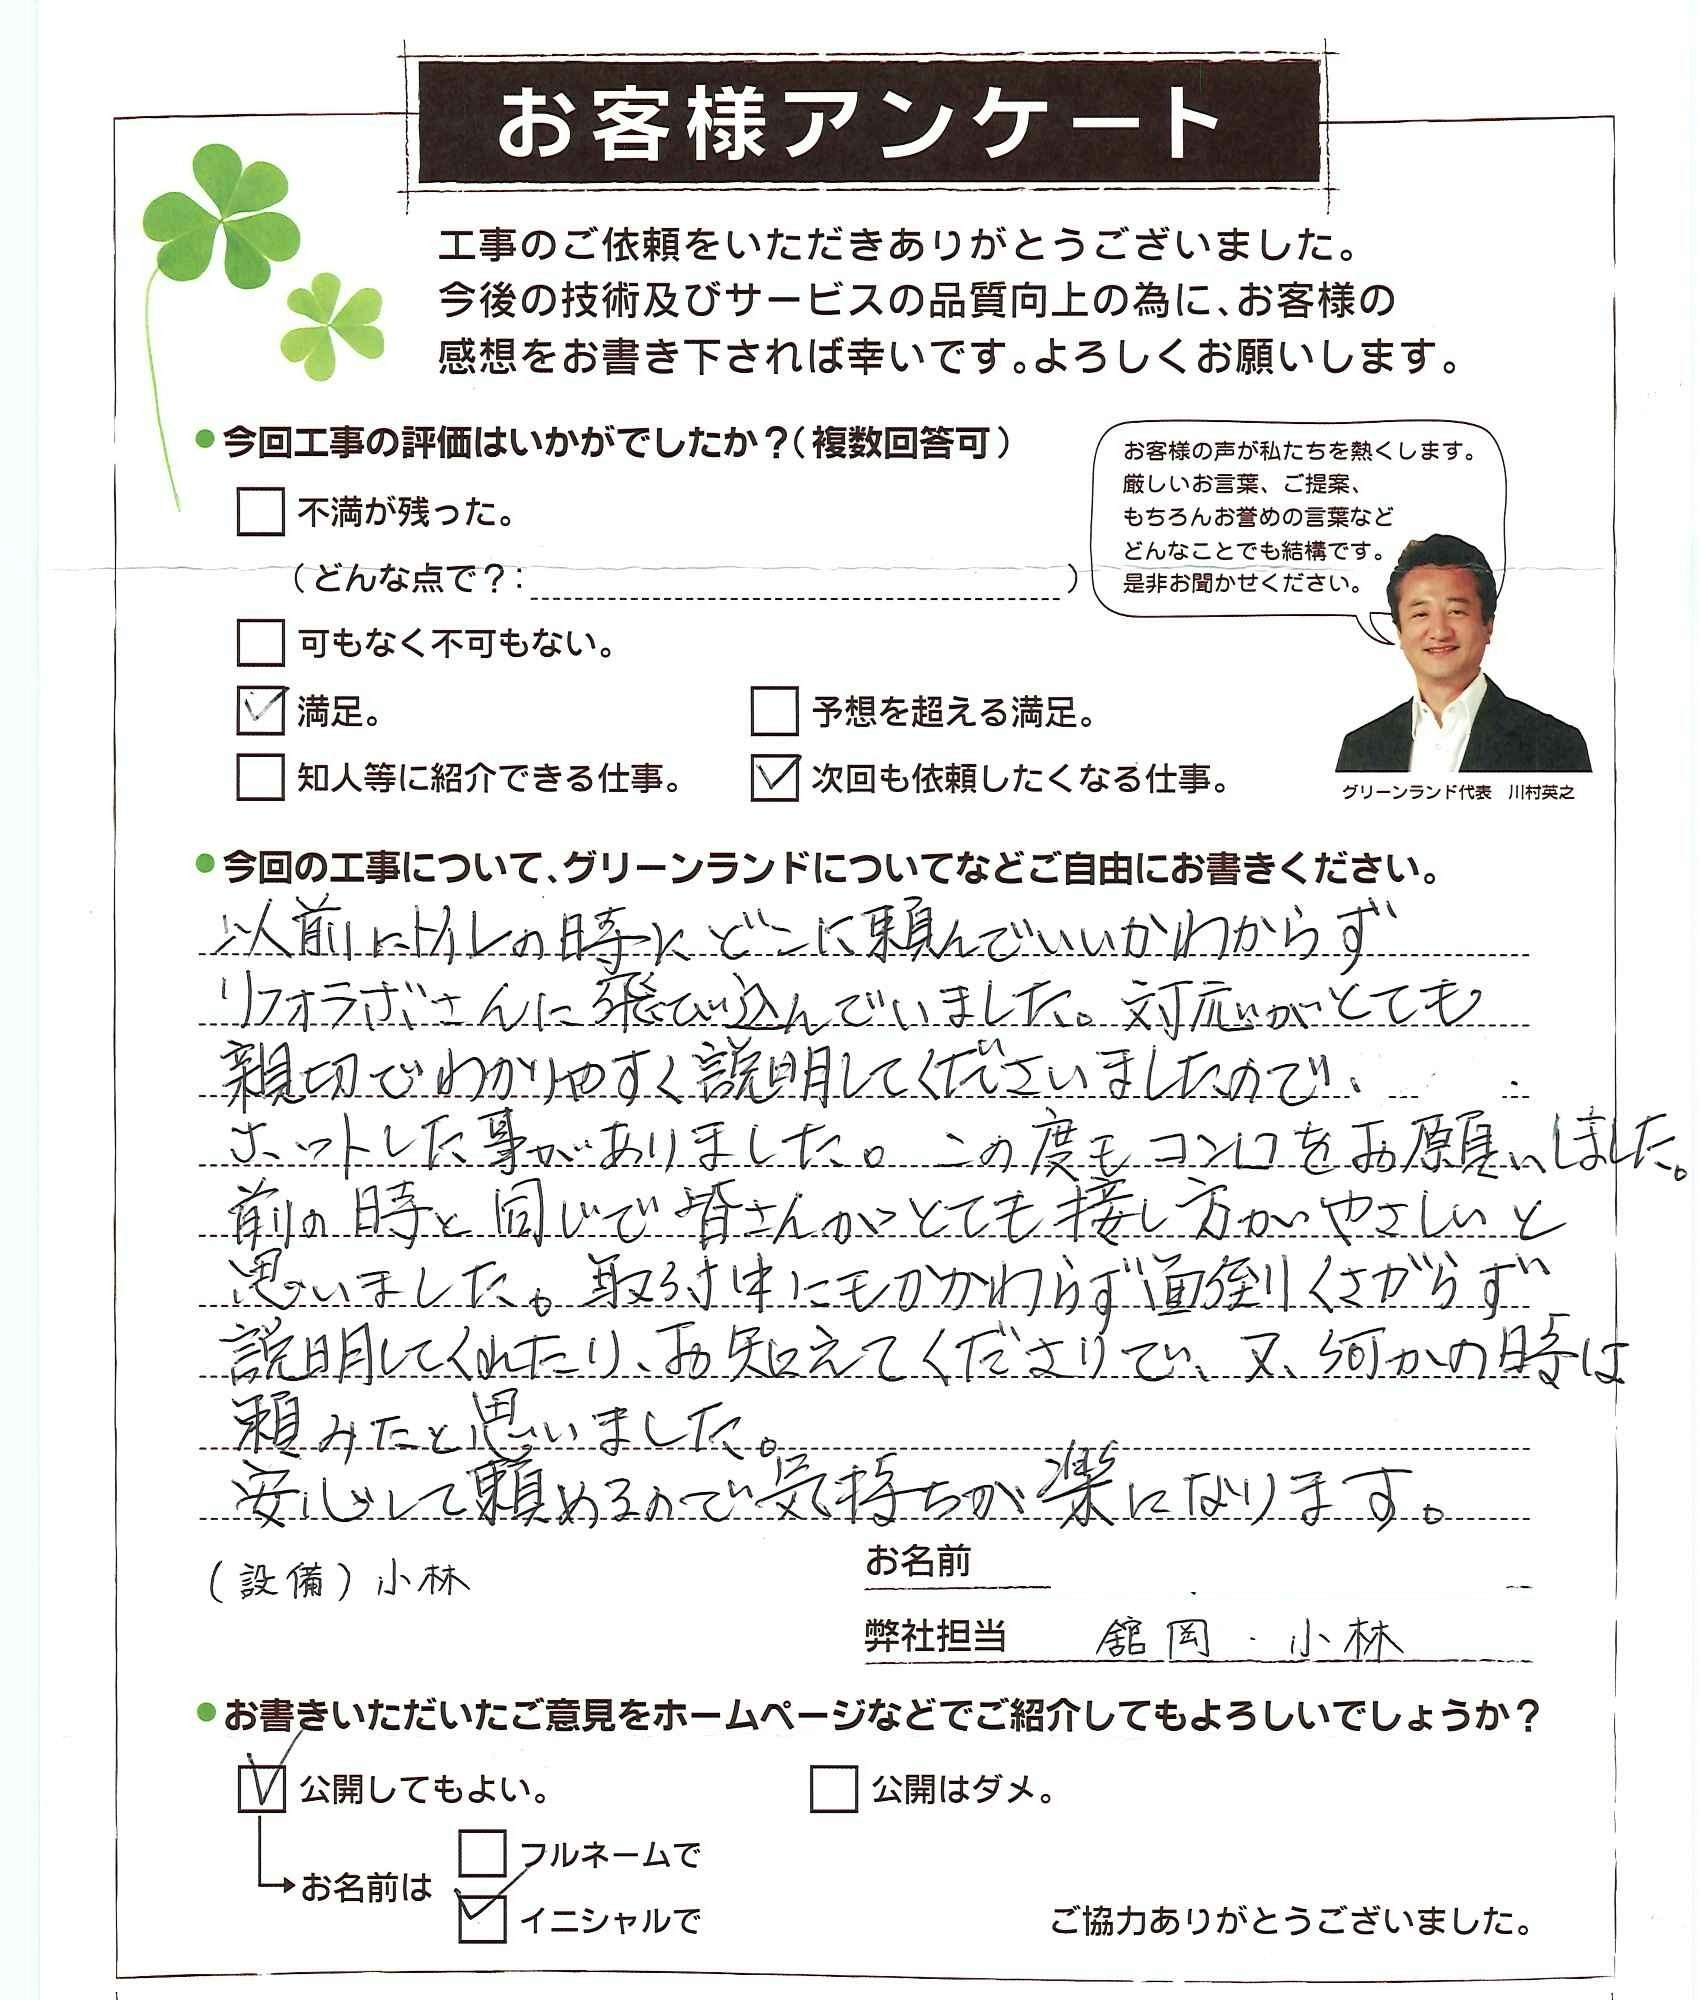 お客様アンケート
工事のご依頼をいただきありがとうございました。
今後の技術及びサービスの品質向上の為に、お客様の
感想をお書き下されば幸いです。よろしくお願いします。
今回工事の評価はいかがでしたか？（複数回答可）
不満が残った。
（どんな点で？：　）
可もなく不可もない。
満足。
予想を超える満足。
知人等に紹介できる仕事。
次回も依頼したくなる仕事。
お客様の声が私たちを熱くします。
厳しいお言葉、ご提案、
もちろんお誉めの言葉など
どんなことでも結構です。
是非お聞かせください。
グリーンランド代表　川村英之
今回の工事について、グリーンランドについてなどご自由にお書きください。
以前にトイレの時にどこに頼んでいいかわからず
リフォラボさんに飛び込んでいました。対応がとても
親切でわかりやすく説明してくださいましたので、
ホットした事がありました。この度もコンロをお願いしました。
前の時と同じで皆さんがとても接し方がやさしいと
思いました。取り付中にもかかわらず面倒くさがらず
説明してくれたり、お知えてくださりてい、又、何かの時は
頼みたと思いました。
安心して頼めるので気持ちが楽になります。
（設備）小林
お名前
弊社担当　舘岡・小林
お書きいただいたご意見をホームページなどでご紹介してもよろしいでしょうか？
公開してもよい。
公開はダメ。
お名前は
フルネームで
イニシャルで
ご協力ありがとうございました。